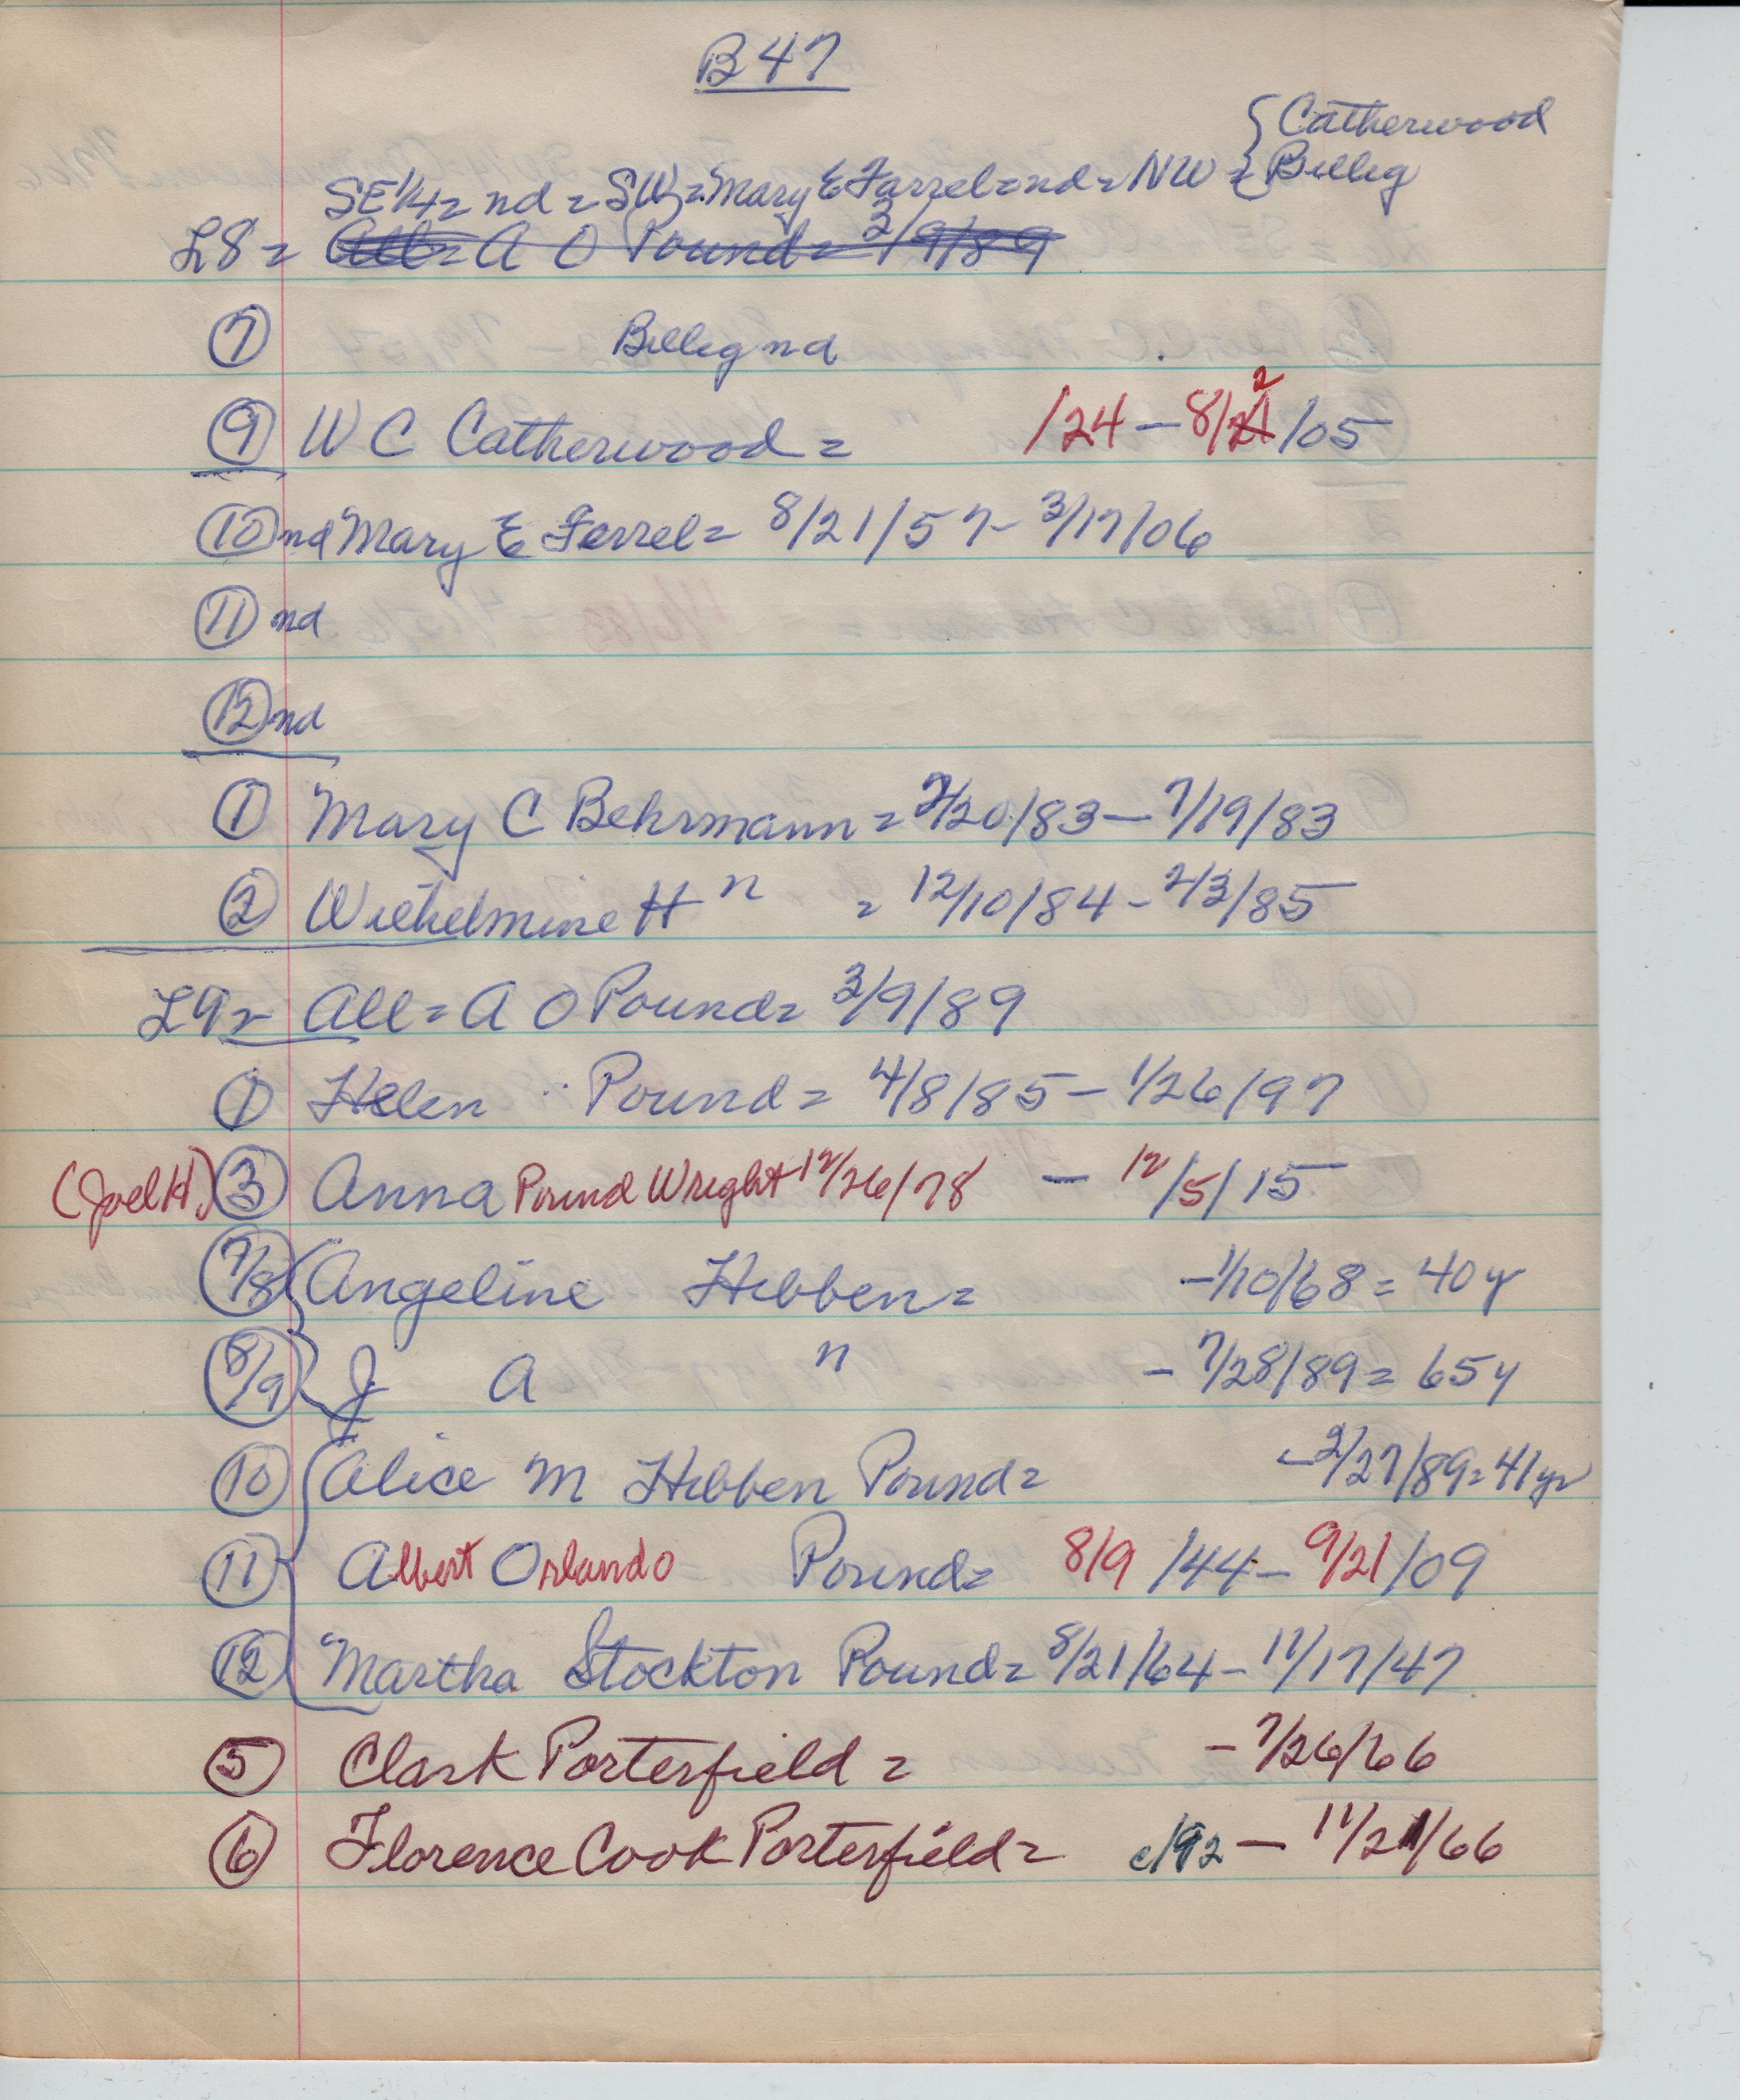 B47
{ Catherwood
SE 1/4 = nd = SW = Mary E Farrel = nd = NW = { Billig
L8 = All = A O Pound = 3/9/89
7 Billig nd
9 W C Catherwood = /24 – 8/2 /05
10 nd Mary E Farrel = 8/21/57 – 3/17/06
11 nd
12 nd
1 Mary C Behrmann = 2/20/83 – 7/19/83
2 Wilhelmine H " = 12/10/84 – 2/3/85
L9 = All = A O Pound = 3/9/89
1 Helen Pound = 4/8/85 – 1/26/97
(Joel H.) 3 Anna Pound Wright 12/26/78 – 12/5/15
7/8 { Angeline Hibben = – 1/10/68 = 40 y
8/9 J A " – 7/28/89 = 65 y
10 { Alice M Hibben Pound = – 2/27/89 = 41 yr
11 Albert Orlando Pound = 8/9/44 – 9/21/09
12 Martha Stockton Pound = 8/21/64 – 11/17/47
5 Clark Porterfield = – 7/26/66
6 Florence Cook Porterfield = c/92 – 11/21/66